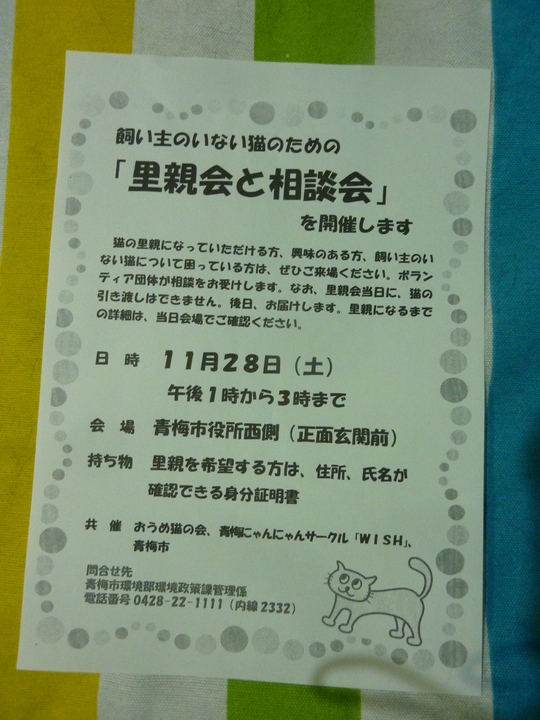 飼い主のいない猫のための
「里親会と相談会」
を開催します
猫の里親になっていただける方、興味のある方、飼い主のい
ない猫について困っている方は、ぜひご来場ください。ボラン
ティア団体が相談をお受けします。なお、里親会当日に、猫の
引き渡しはできません。後日、お届けします。里親になるまで
の詳細は、当日会場でご確認ください。
日 時 11月28日(土)
午後1時から3時まで
会 場 青梅市役所西側(正面玄関前)
持ち物 里親を希望する方は、住所、氏名が
確認できる身分証明書
共 催 おうめ猫の会、青梅にゃんにゃんサークル「WISH」、
青梅市
問合せ先
青梅市環境部環境政策課管理係
電話番号 0428-22-1111(内線 2332)